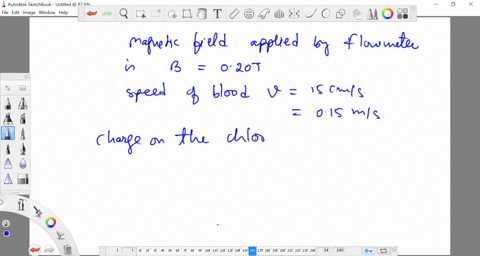 Autodesk SketchBook - Untitled @ 87.6%
File Edit Image Window Help
magnetic field applied by flowmeter
is B = 0.20T
speed of blood v = 15 cm/s
= 0.15 m/s
charge on the chlor